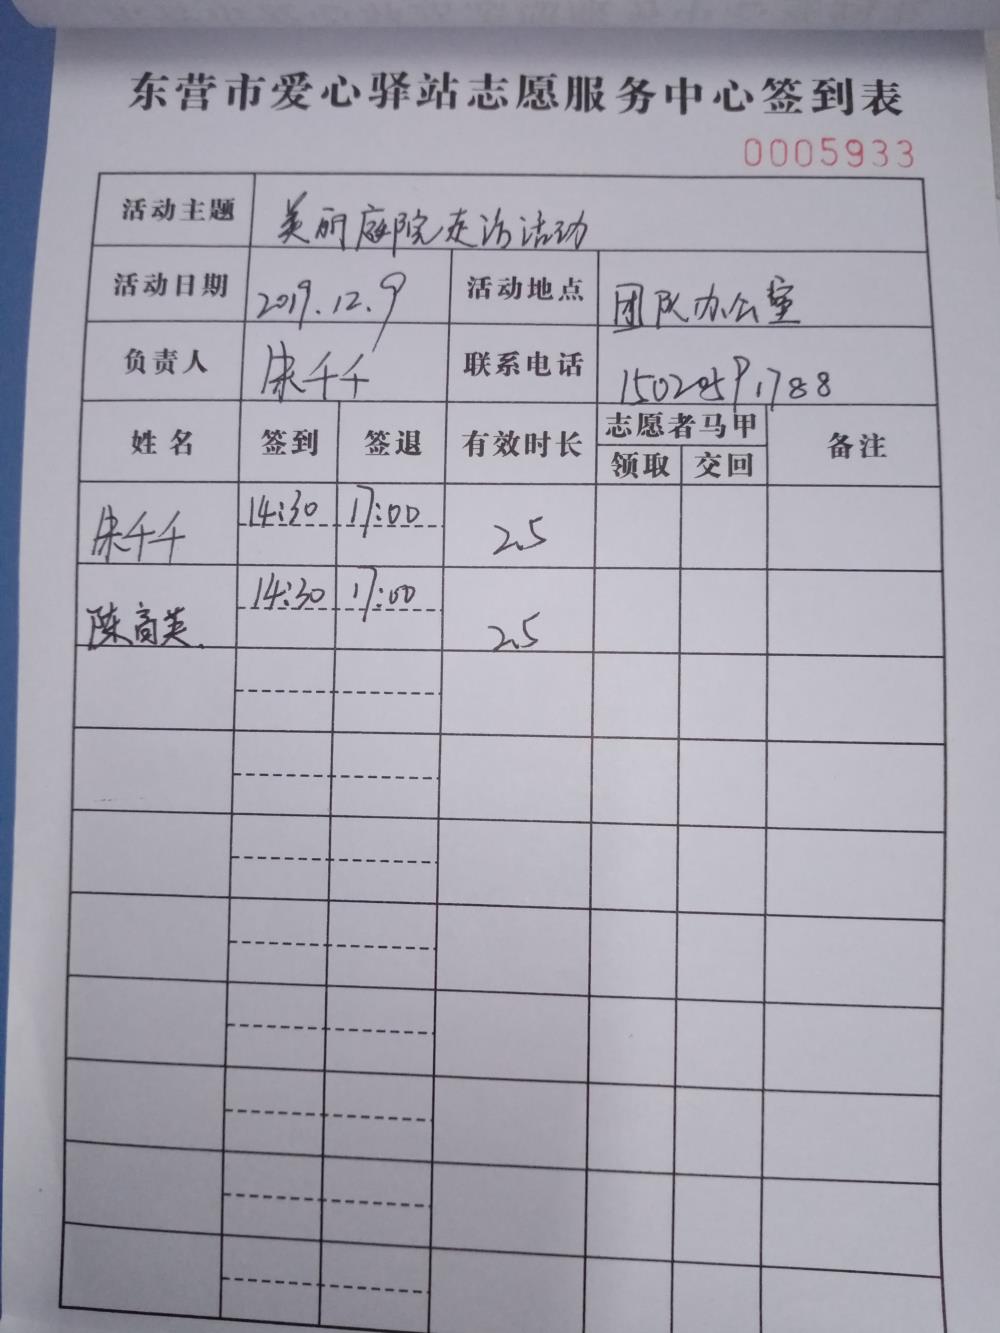 东营市爱心驿站志愿服务中心签到表
0005933
活动主题 美丽庭院走访活动
活动日期 2019.12.9 活动地点 团队办公室
负责人 朱千千 联系电话
姓名 签到 签退 有效时长 志愿者马甲 备注
领取 交回
朱千千 14:30 17:00 2.5
陈高英. 14:30 17:00 2.5